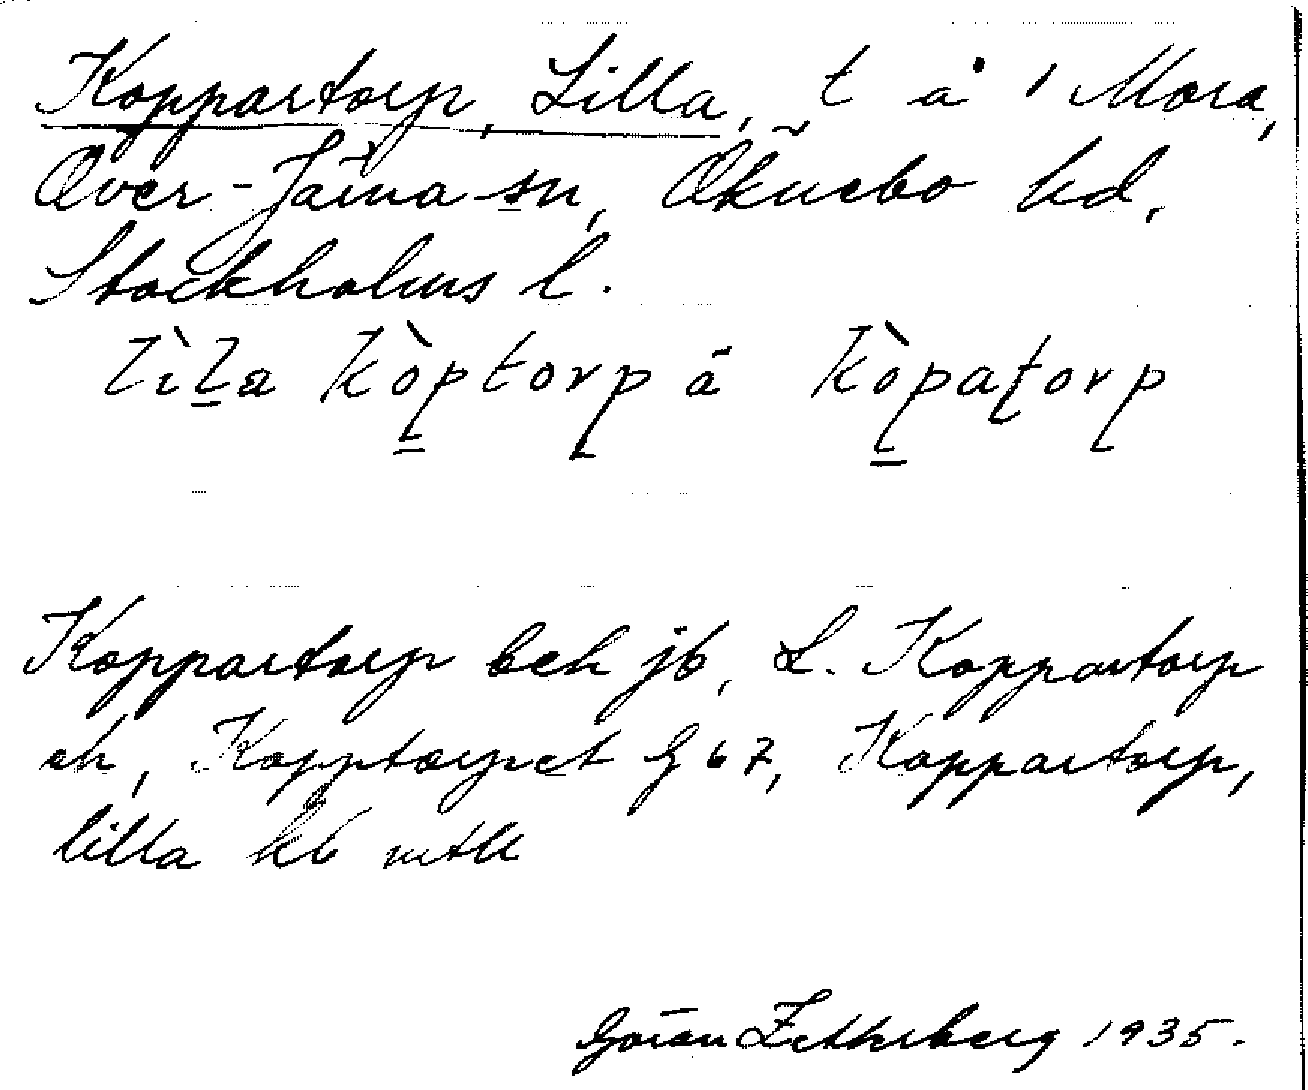 Koppartorp, Lilla, t å 1 Mora,
Över-Järna sn, Öknebo hd,
Stockholms l.
lìla kòptorp å kòpatorp
Koppartorp beh jb, L. Koppartorp
eh, Kopptorpet G 67, Koppartorp,
lilla kb mtll
Göran Zetherberg 1935.